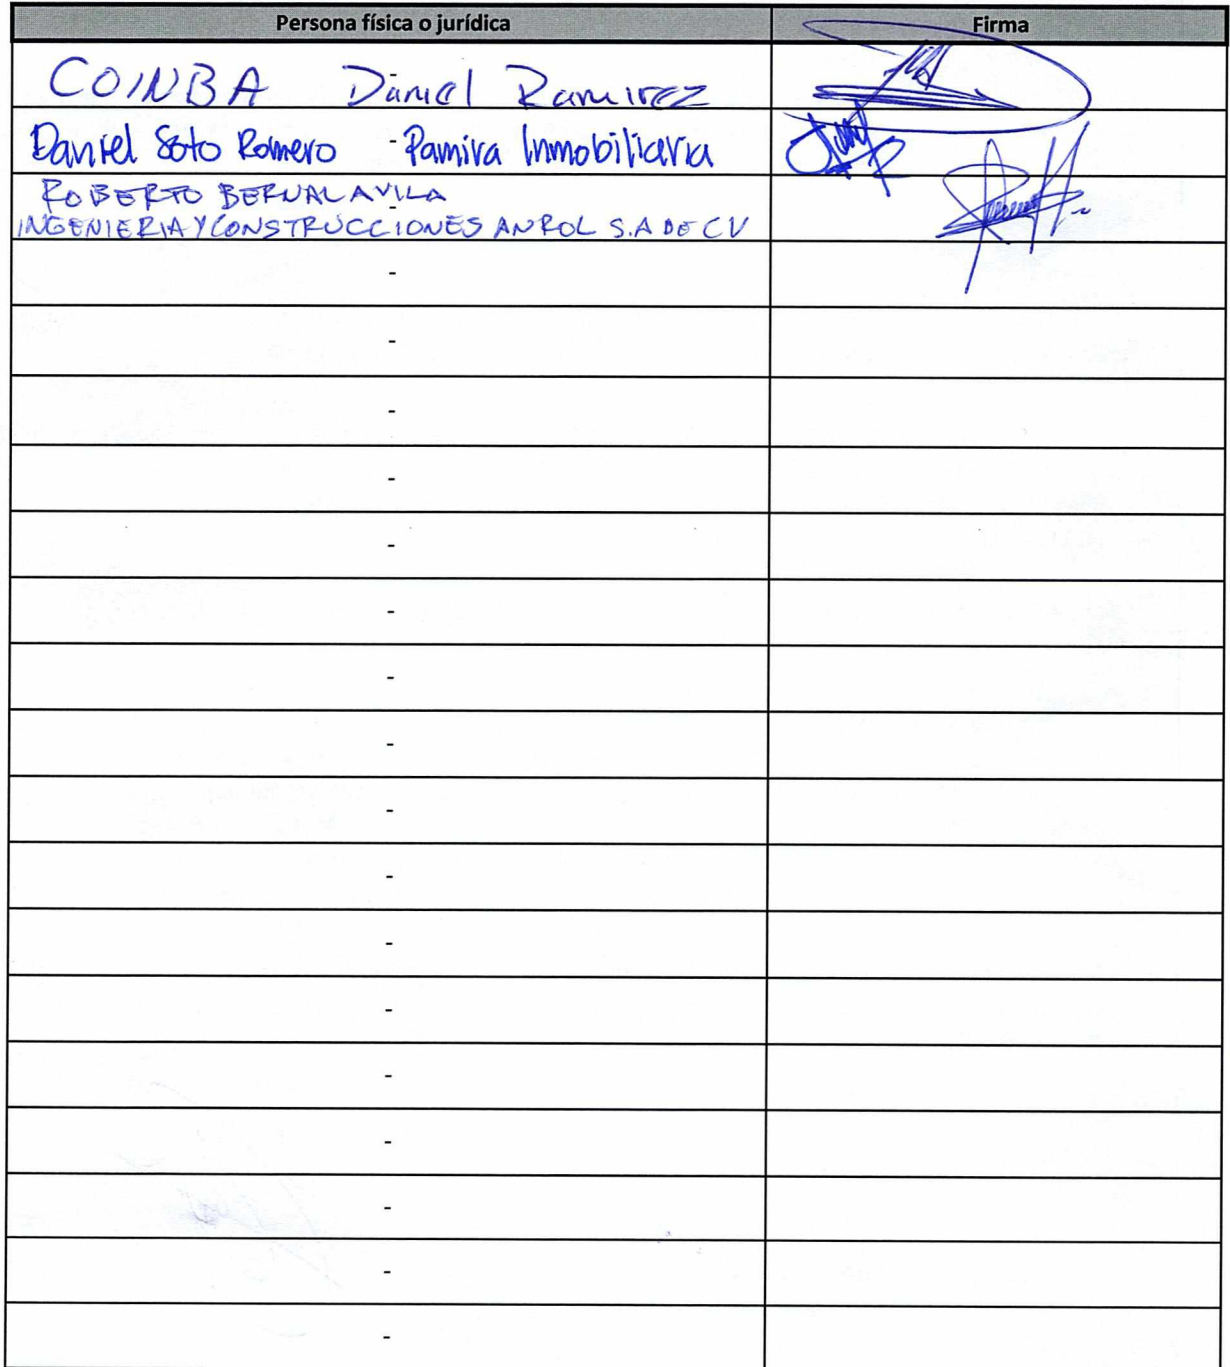 Persona física o jurídica Firma
COINBA Daniel Ramirez
Daniel Soto Romero - Pamira Inmobiliaria
ROBERTO BERNAL AVILA
-
INGENIERIA Y CONSTRUCCIONES ANROL S.A DE CV
-
-
-
-
-
-
-
-
-
-
-
-
-
-
-
-
-